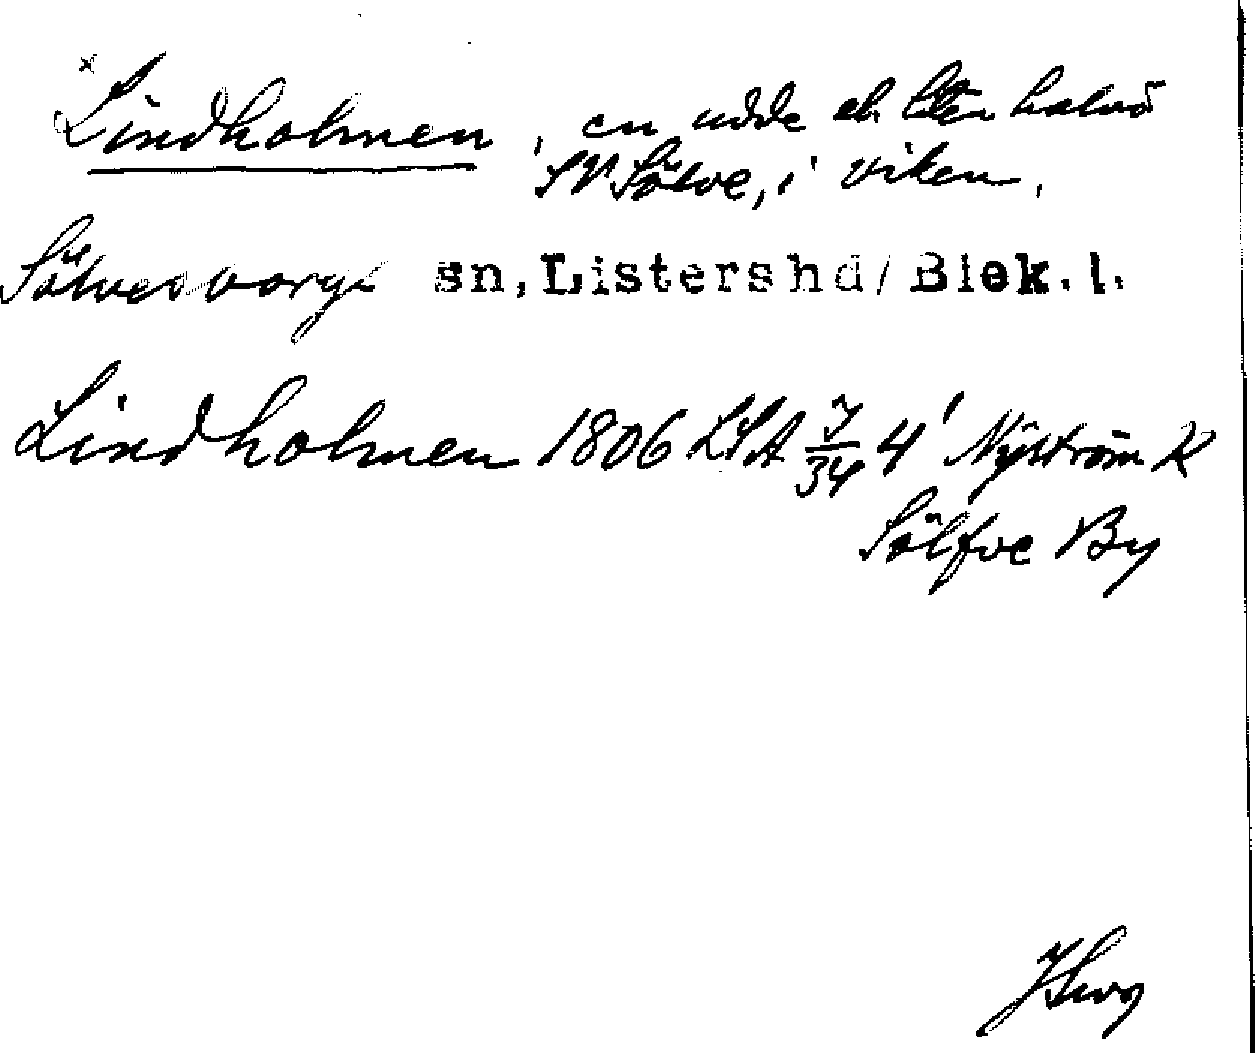 x Lindholmen, en udde el. liten halvö
SV Sölve, i viken.
Sölvesborgs sn, Listers hd/Blek. l.
Lindholmen 1806 LSA 7/34 4' Nyström K
Sölfve By